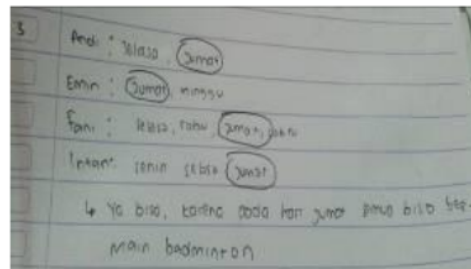 3
Andi : selasa, jumat
Emin : jumat, minggu
Fani : selasa, rabu, jumat, sabtu
Intan : senin selasa jumat
↳ Ya bisa, karena pada hari jumat bisa
main badminton